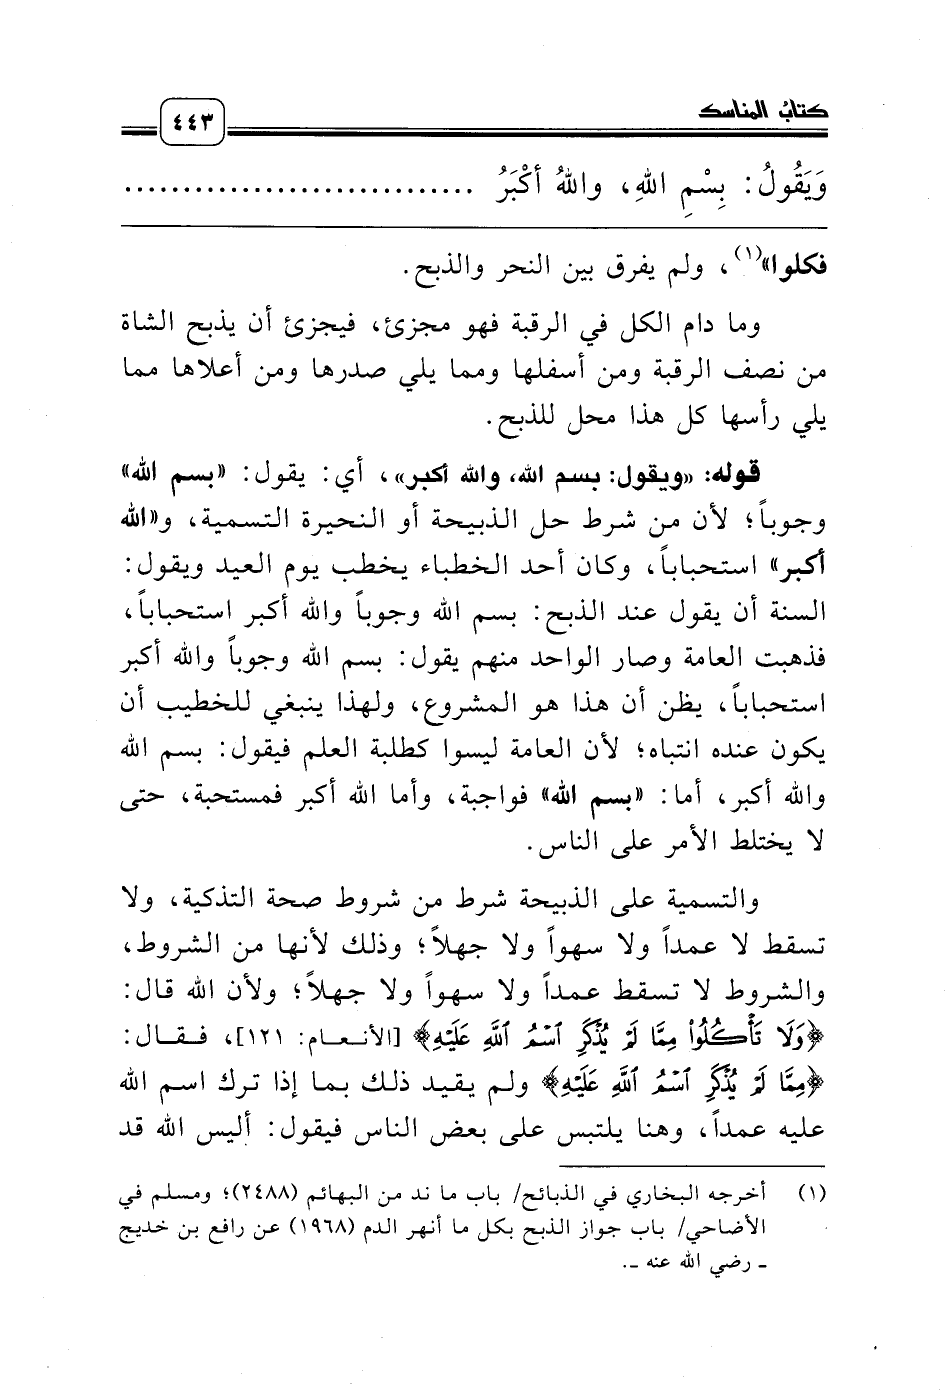 كتابُ المناسك
٤٤٣
وَيَقُولُ: بِسْمِ اللهِ، واللهُ أكْبَرُ ..............................
فكلوا»(١)، ولم يفرق بين النحر والذبح.
وما دام الكل في الرقبة فهو مجزئ، فيجزئ أن يذبح الشاة
من نصف الرقبة ومن أسفلها ومما يلي صدرها ومن أعلاها مما
يلي رأسها كل هذا محل للذبح.
قوله: «ويقول: بسم الله، والله أكبر»، أي: يقول: «بسم الله»
وجوباً؛ لأن من شرط حل الذبيحة أو النحيرة التسمية، و«الله
أكبر» استحباباً، وكان أحد الخطباء يخطب يوم العيد ويقول:
السنة أن يقول عند الذبح: بسم الله وجوباً والله أكبر استحباباً،
فذهبت العامة وصار الواحد منهم يقول: بسم الله وجوباً والله أكبر
استحباباً، يظن أن هذا هو المشروع، ولهذا ينبغي للخطيب أن
يكون عنده انتباه؛ لأن العامة ليسوا كطلبة العلم فيقول: بسم الله
والله أكبر، أما: «بسم الله» فواجبة، وأما الله أكبر فمستحبة، حتى
لا يختلط الأمر على الناس.
والتسمية على الذبيحة شرط من شروط صحة التذكية، ولا
تسقط لا عمداً ولا سهواً ولا جهلاً؛ وذلك لأنها من الشروط،
والشروط لا تسقط عمداً ولا سهواً ولا جهلاً؛ ولأن الله قال:
﴿وَلَا تَأْكُلُوا۟ مِمَّا لَمْ يُذْكَرِ ٱسْمُ ٱللَّهِ عَلَيْهِ﴾ [الأنعام: ١٢١]، فقال:
﴿مِمَّا لَمْ يُذْكَرِ ٱسْمُ ٱللَّهِ عَلَيْهِ﴾ ولم يقيد ذلك بما إذا ترك اسم الله
عليه عمداً، وهنا يلتبس على بعض الناس فيقول: أليس الله قد
(١) أخرجه البخاري في الذبائح/ باب ما ند من البهائم (٢٤٨٨)؛ ومسلم في
الأضاحي/ باب جواز الذبح بكل ما أنهر الدم (١٩٦٨) عن رافع بن خديج
ـ رضي الله عنه ـ.